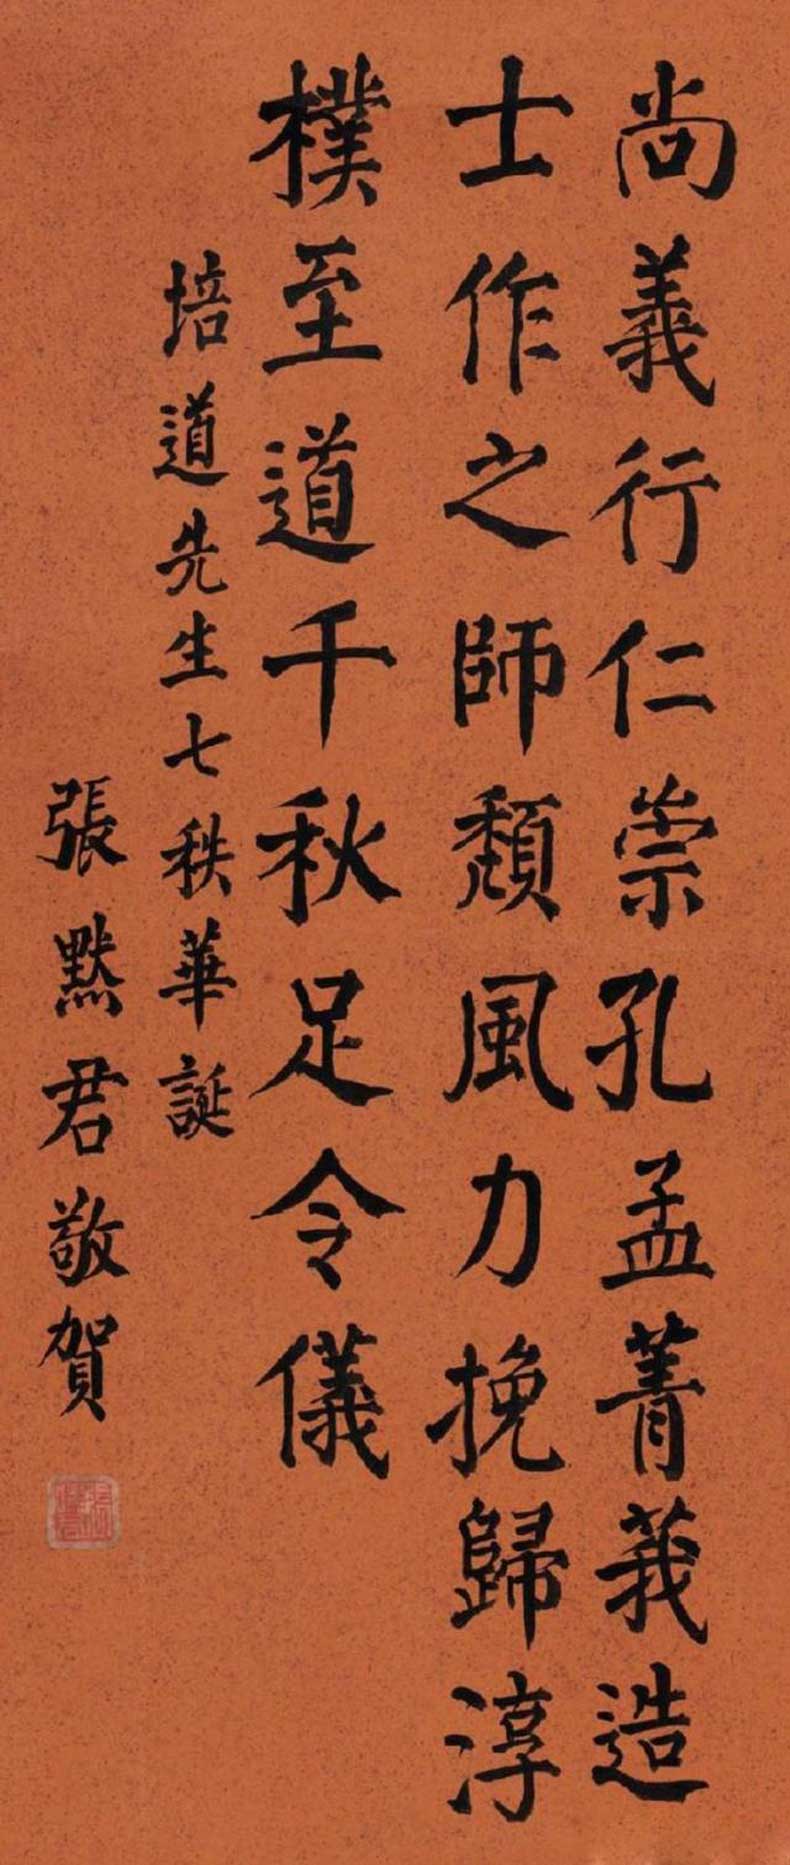 尚義行仁崇孔孟菁莪造
士作之師頹風力挽歸淳
樸至道千秋足令儀
培道先生七秩華誕
張默君敬賀